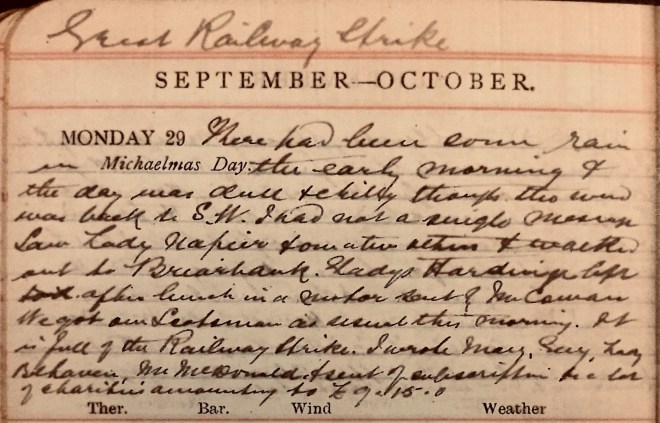 Great Railway Strike
SEPTEMBER—OCTOBER.
MONDAY 29 There had been some rain
in Michaelmas Day. the early morning &
the day was dull & chilly though the wind
was back to S.W. I had not a single message
Saw Lady Napier & one or two others & walked
out to Briarbank. Gladys Hardinge left
after lunch in a motor sent by McCowan
We got our Scotsman as usual this morning. It
is full of the Railway Strike. I wrote Mary, Guy, Lady
Belhaven, Mr McDonald & sent of subscription to a lot
of charities amounting to £ 9.15.0
Ther. Bar. Wind Weather